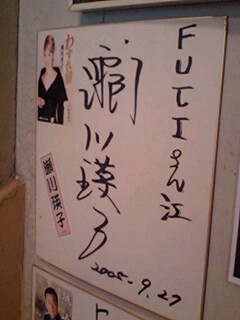 FUTIさん江
瀬川瑛子
瀬川瑛子
2005-9.27